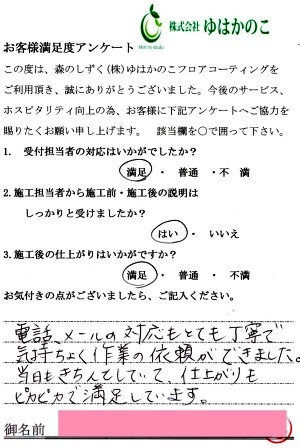 株式会社 ゆはかのこ
お客様満足度アンケート
この度は、森のしずく(株)ゆはかのこフロアコーティングを
ご利用頂き、誠にありがとうございました。今後のサービス、
ホスピタリティ向上の為、お客様に下記アンケートへご協力を
賜りたくお願い申し上げます。 該当欄を○で囲って下さい。
1. 受付担当者の対応はいかがでしたか?
満足 ・ 普通 ・ 不 満
2. 施工担当者から施工前・施工後の説明は
しっかりと受けましたか?
はい ・ いいえ
3. 施工後の仕上がりはいかがですか?
満足 ・ 普通 ・ 不満
お気付きの点がございましたら、ご記入ください。
電話、メールの対応もとても丁寧で
気持ちよく作業の依頼ができました。
当日もきちんとしていて、仕上がりも
ピカピカで満足しています。
御名前